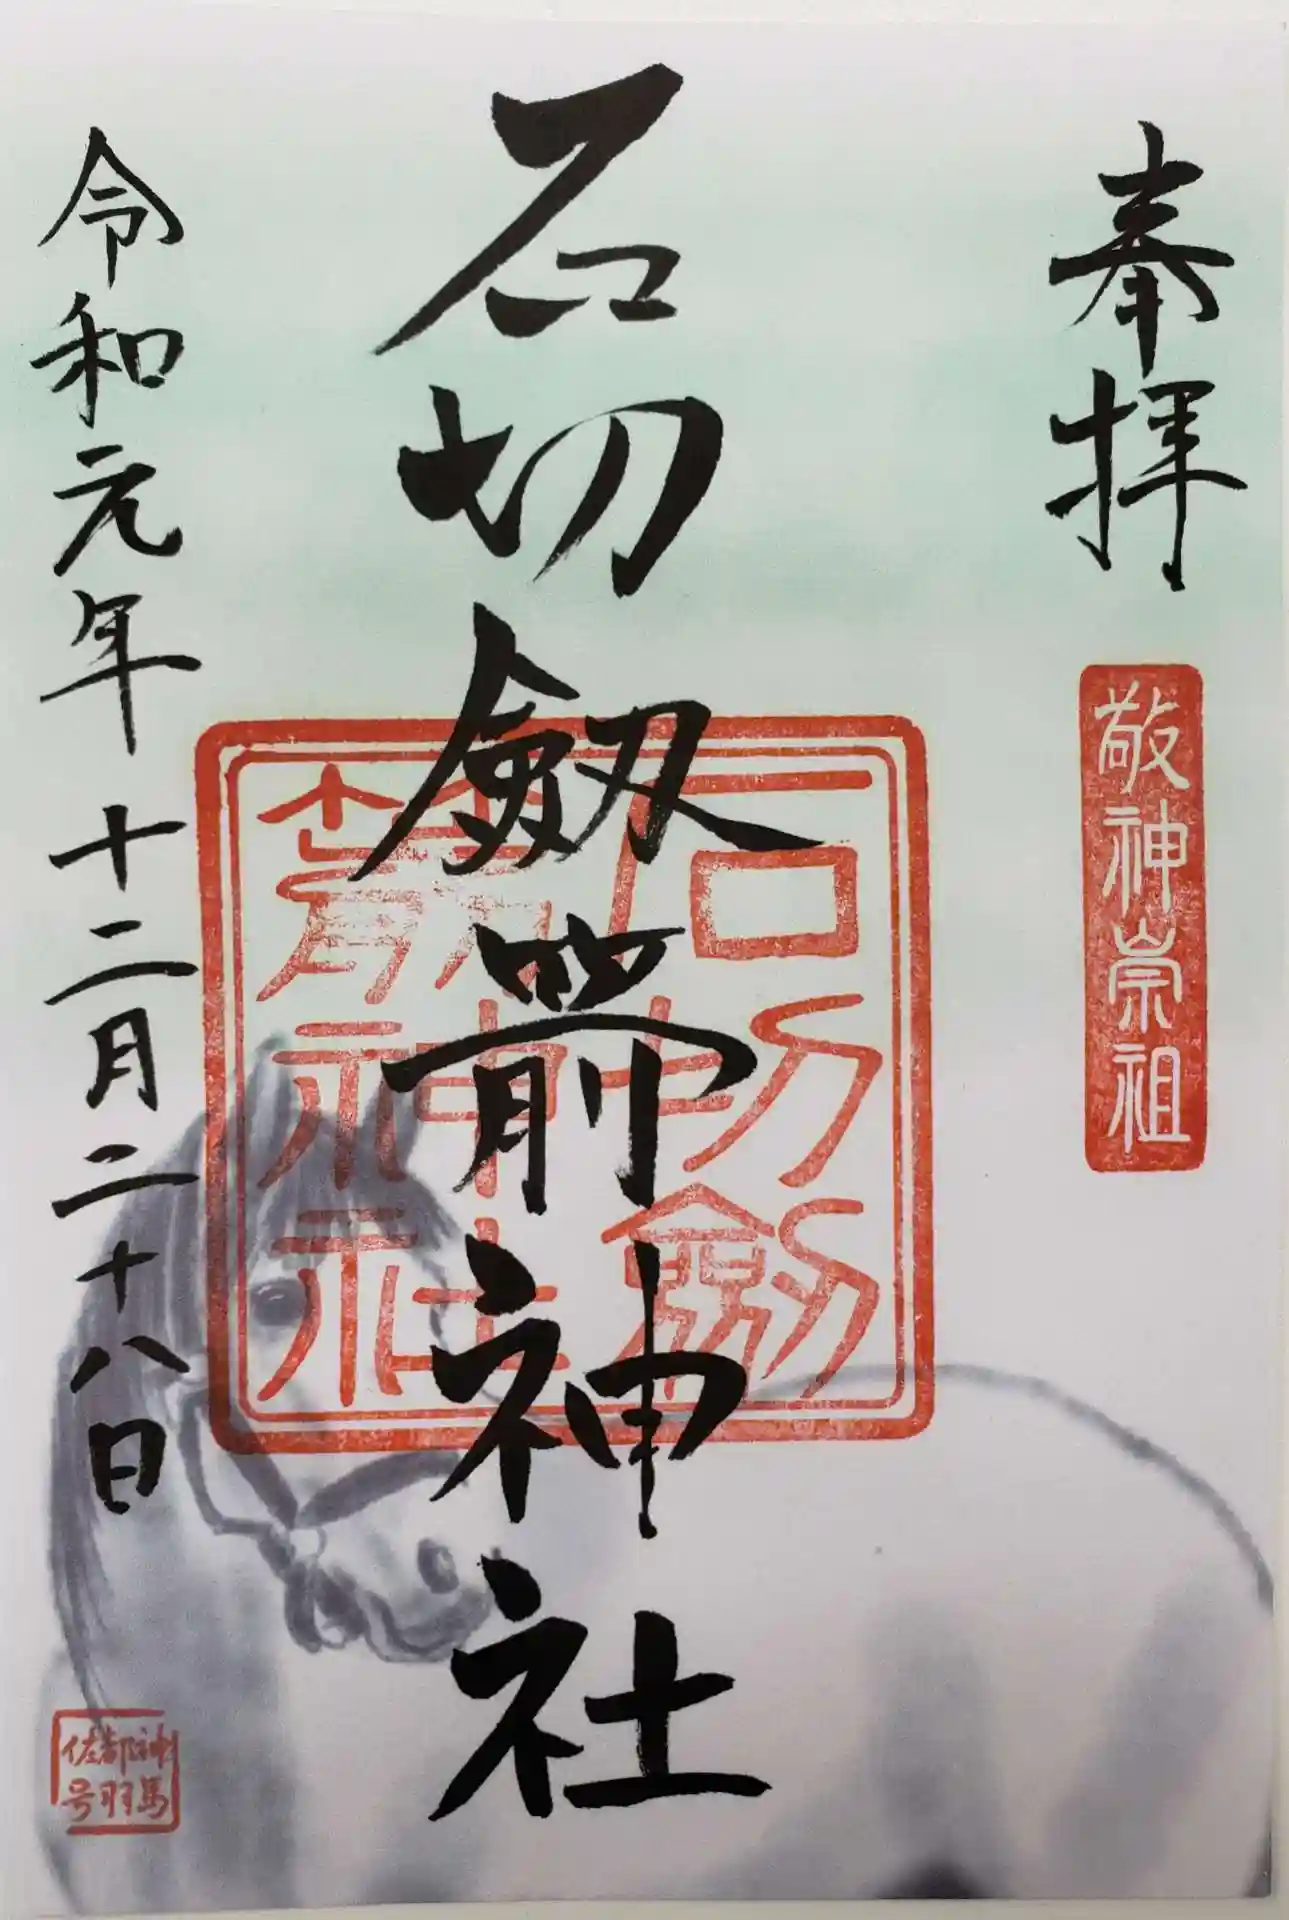 奉拝
敬神崇祖
石切劔箭神社
石切劔
箭神社
令和元年十二月二十八日
神馬
都羽
佐号